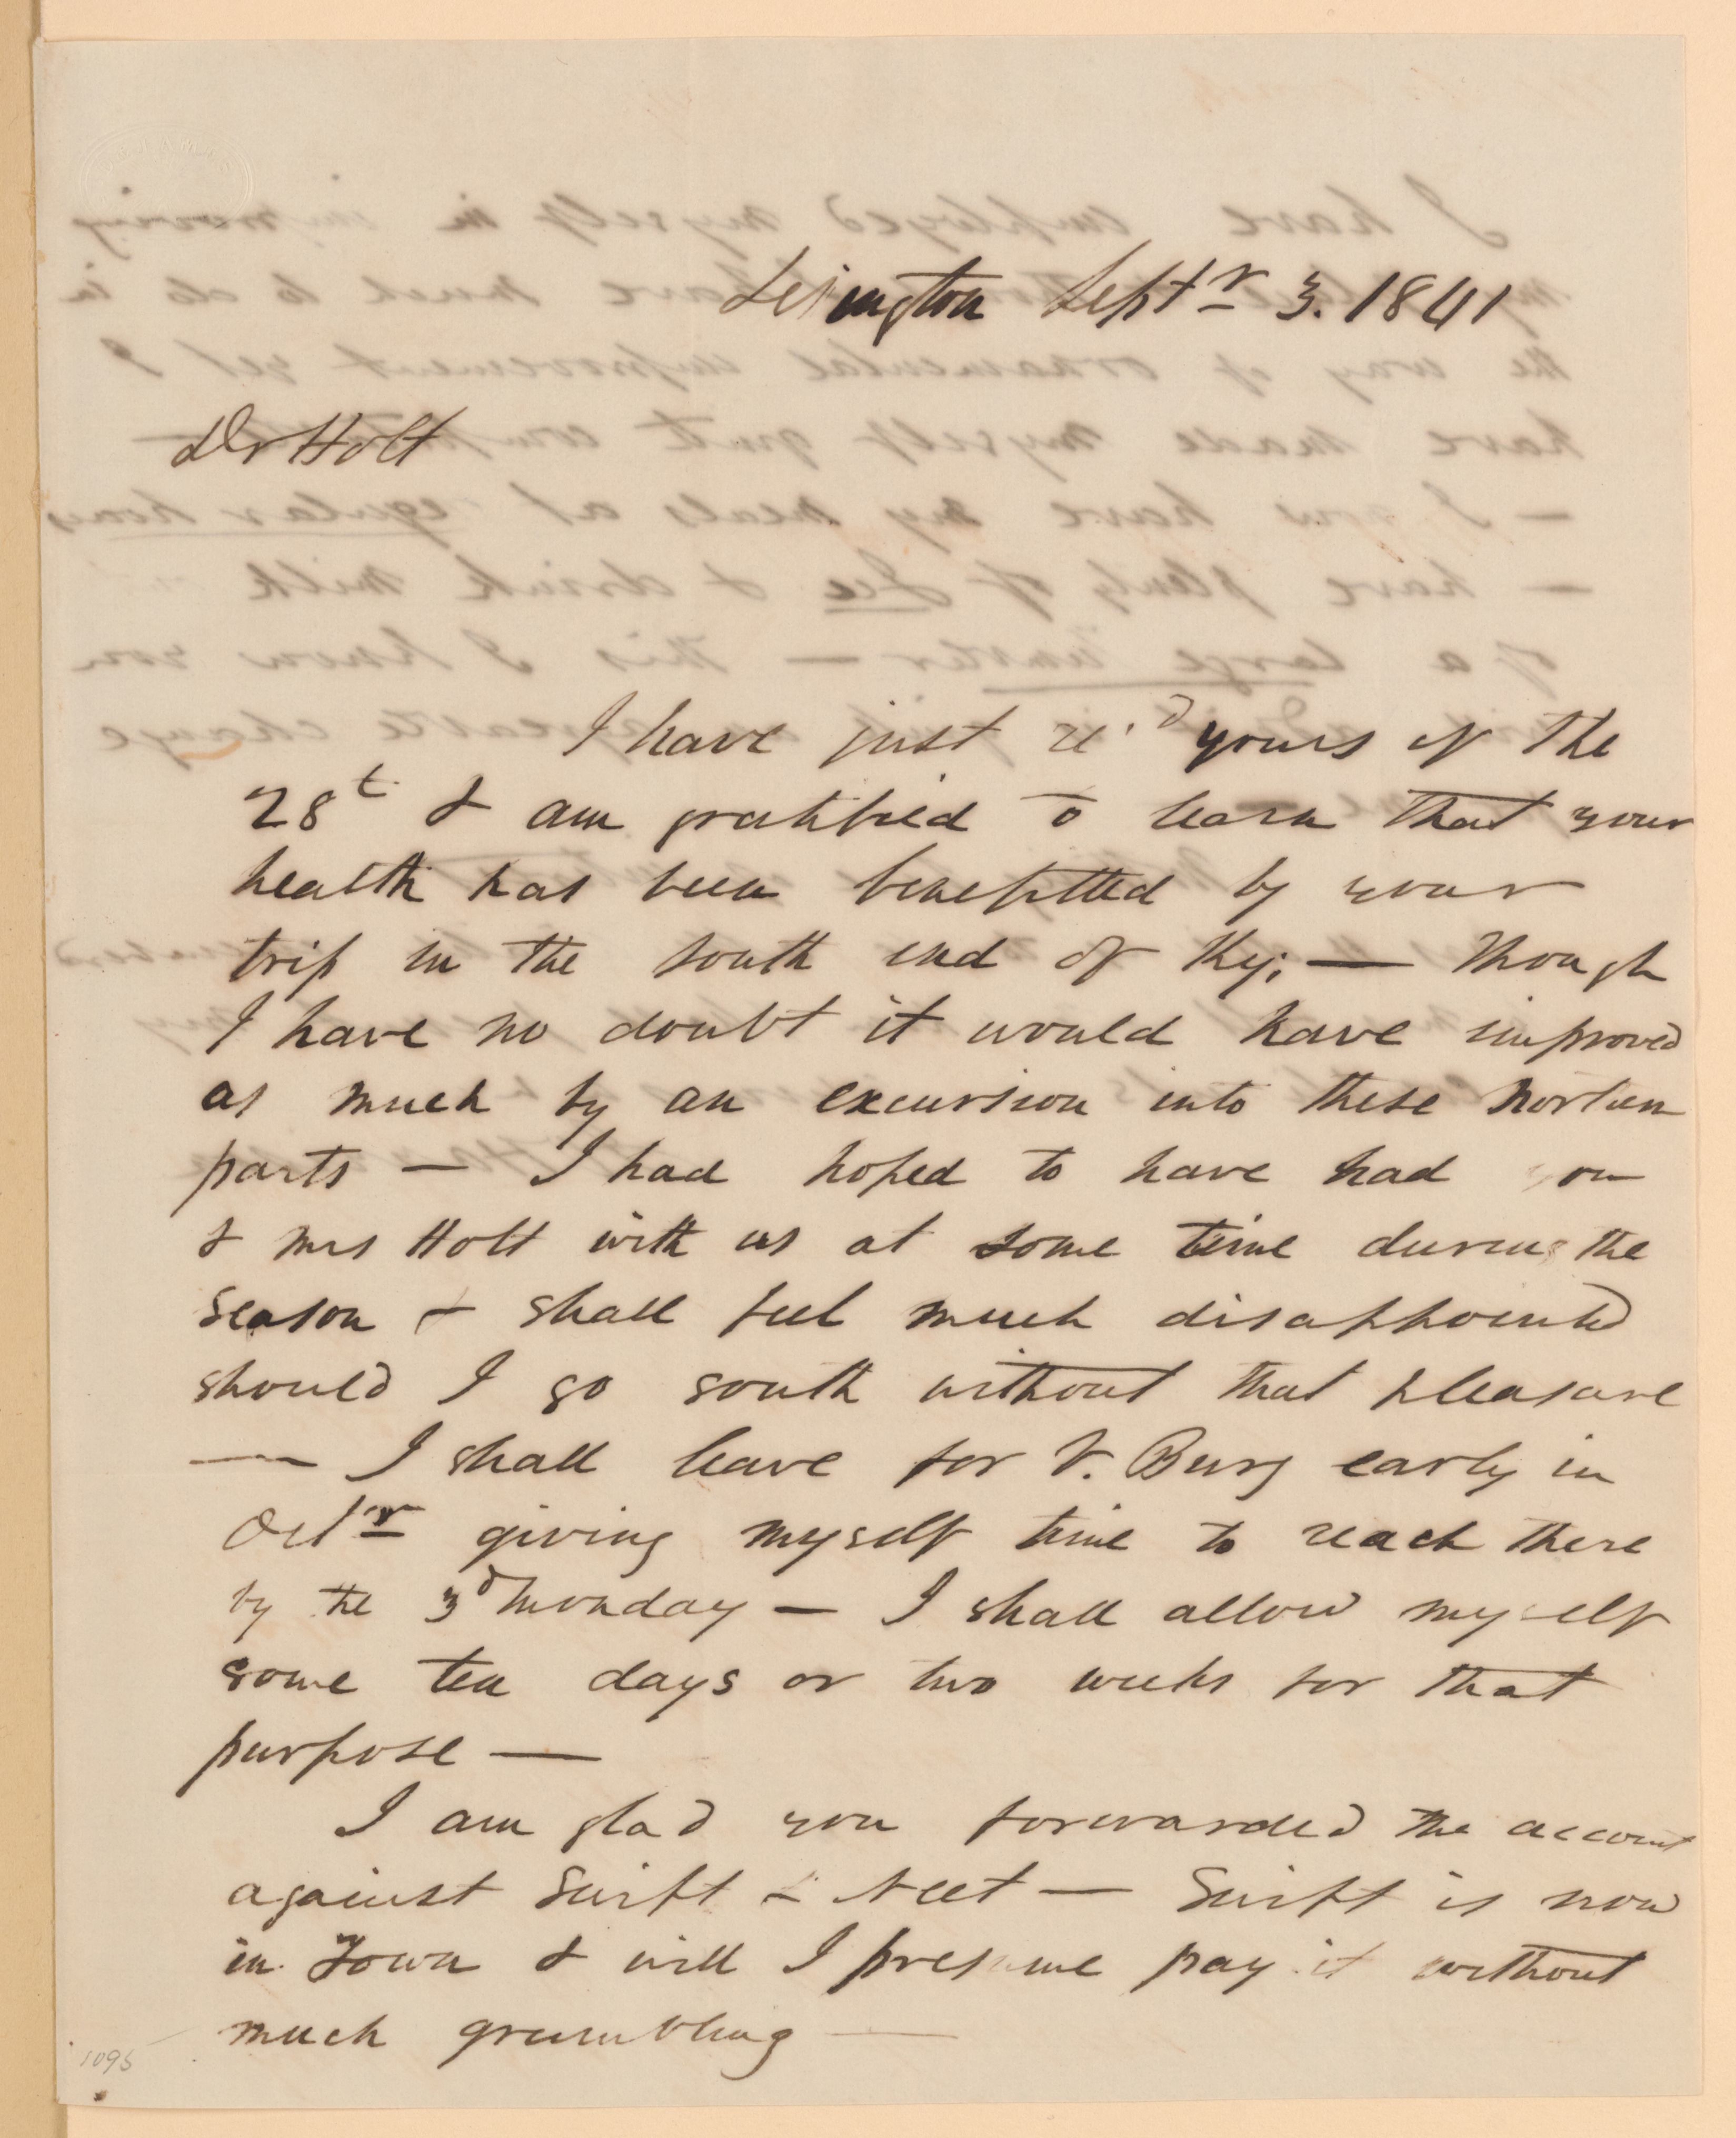 Lexington Septr 3. 1841
Dr Holt
I have just recd yours of the
28t & am gratified to learn that your
health has been benefitted by your
trip in the south end of Ky; — though
I have no doubt it would have improved
as much by an excursion into these northern
parts — I had hoped to have had you
& Mrs Holt with us at some time during the
season & shall feel much disappointed
should I go south without that pleasure
— I shall leave for V. Burg early in
Octr giving myself time to reach there
by the 3d Monday — I shall allow myself
some ten days or two weeks for that
purpose —
I am glad you forwarded the account
against Swift & Neet — Swift is now
in Town & will I presume pay it without
much grumbling —
1095